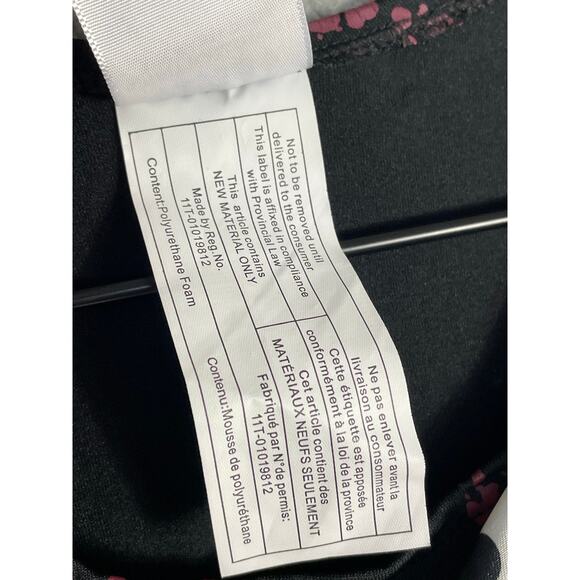 Not to be removed until
delivered to the consumer
This label is affixed in compliance
with Provincial Law
This article contains
NEW MATERIAL ONLY
Made by Reg.No.
11T-01019812
Content:Polyurethane Foam
Ne pas enlever avant la
livraison au consommateur
Cette étiquette est apposée
conformément à la loi de la province
Cet article contient des
MATÉRIAUX NEUFS SEULEMENT
Fabriqué par N°de permis:
11T-01019812
Contenu:Mousse de polyuréthane